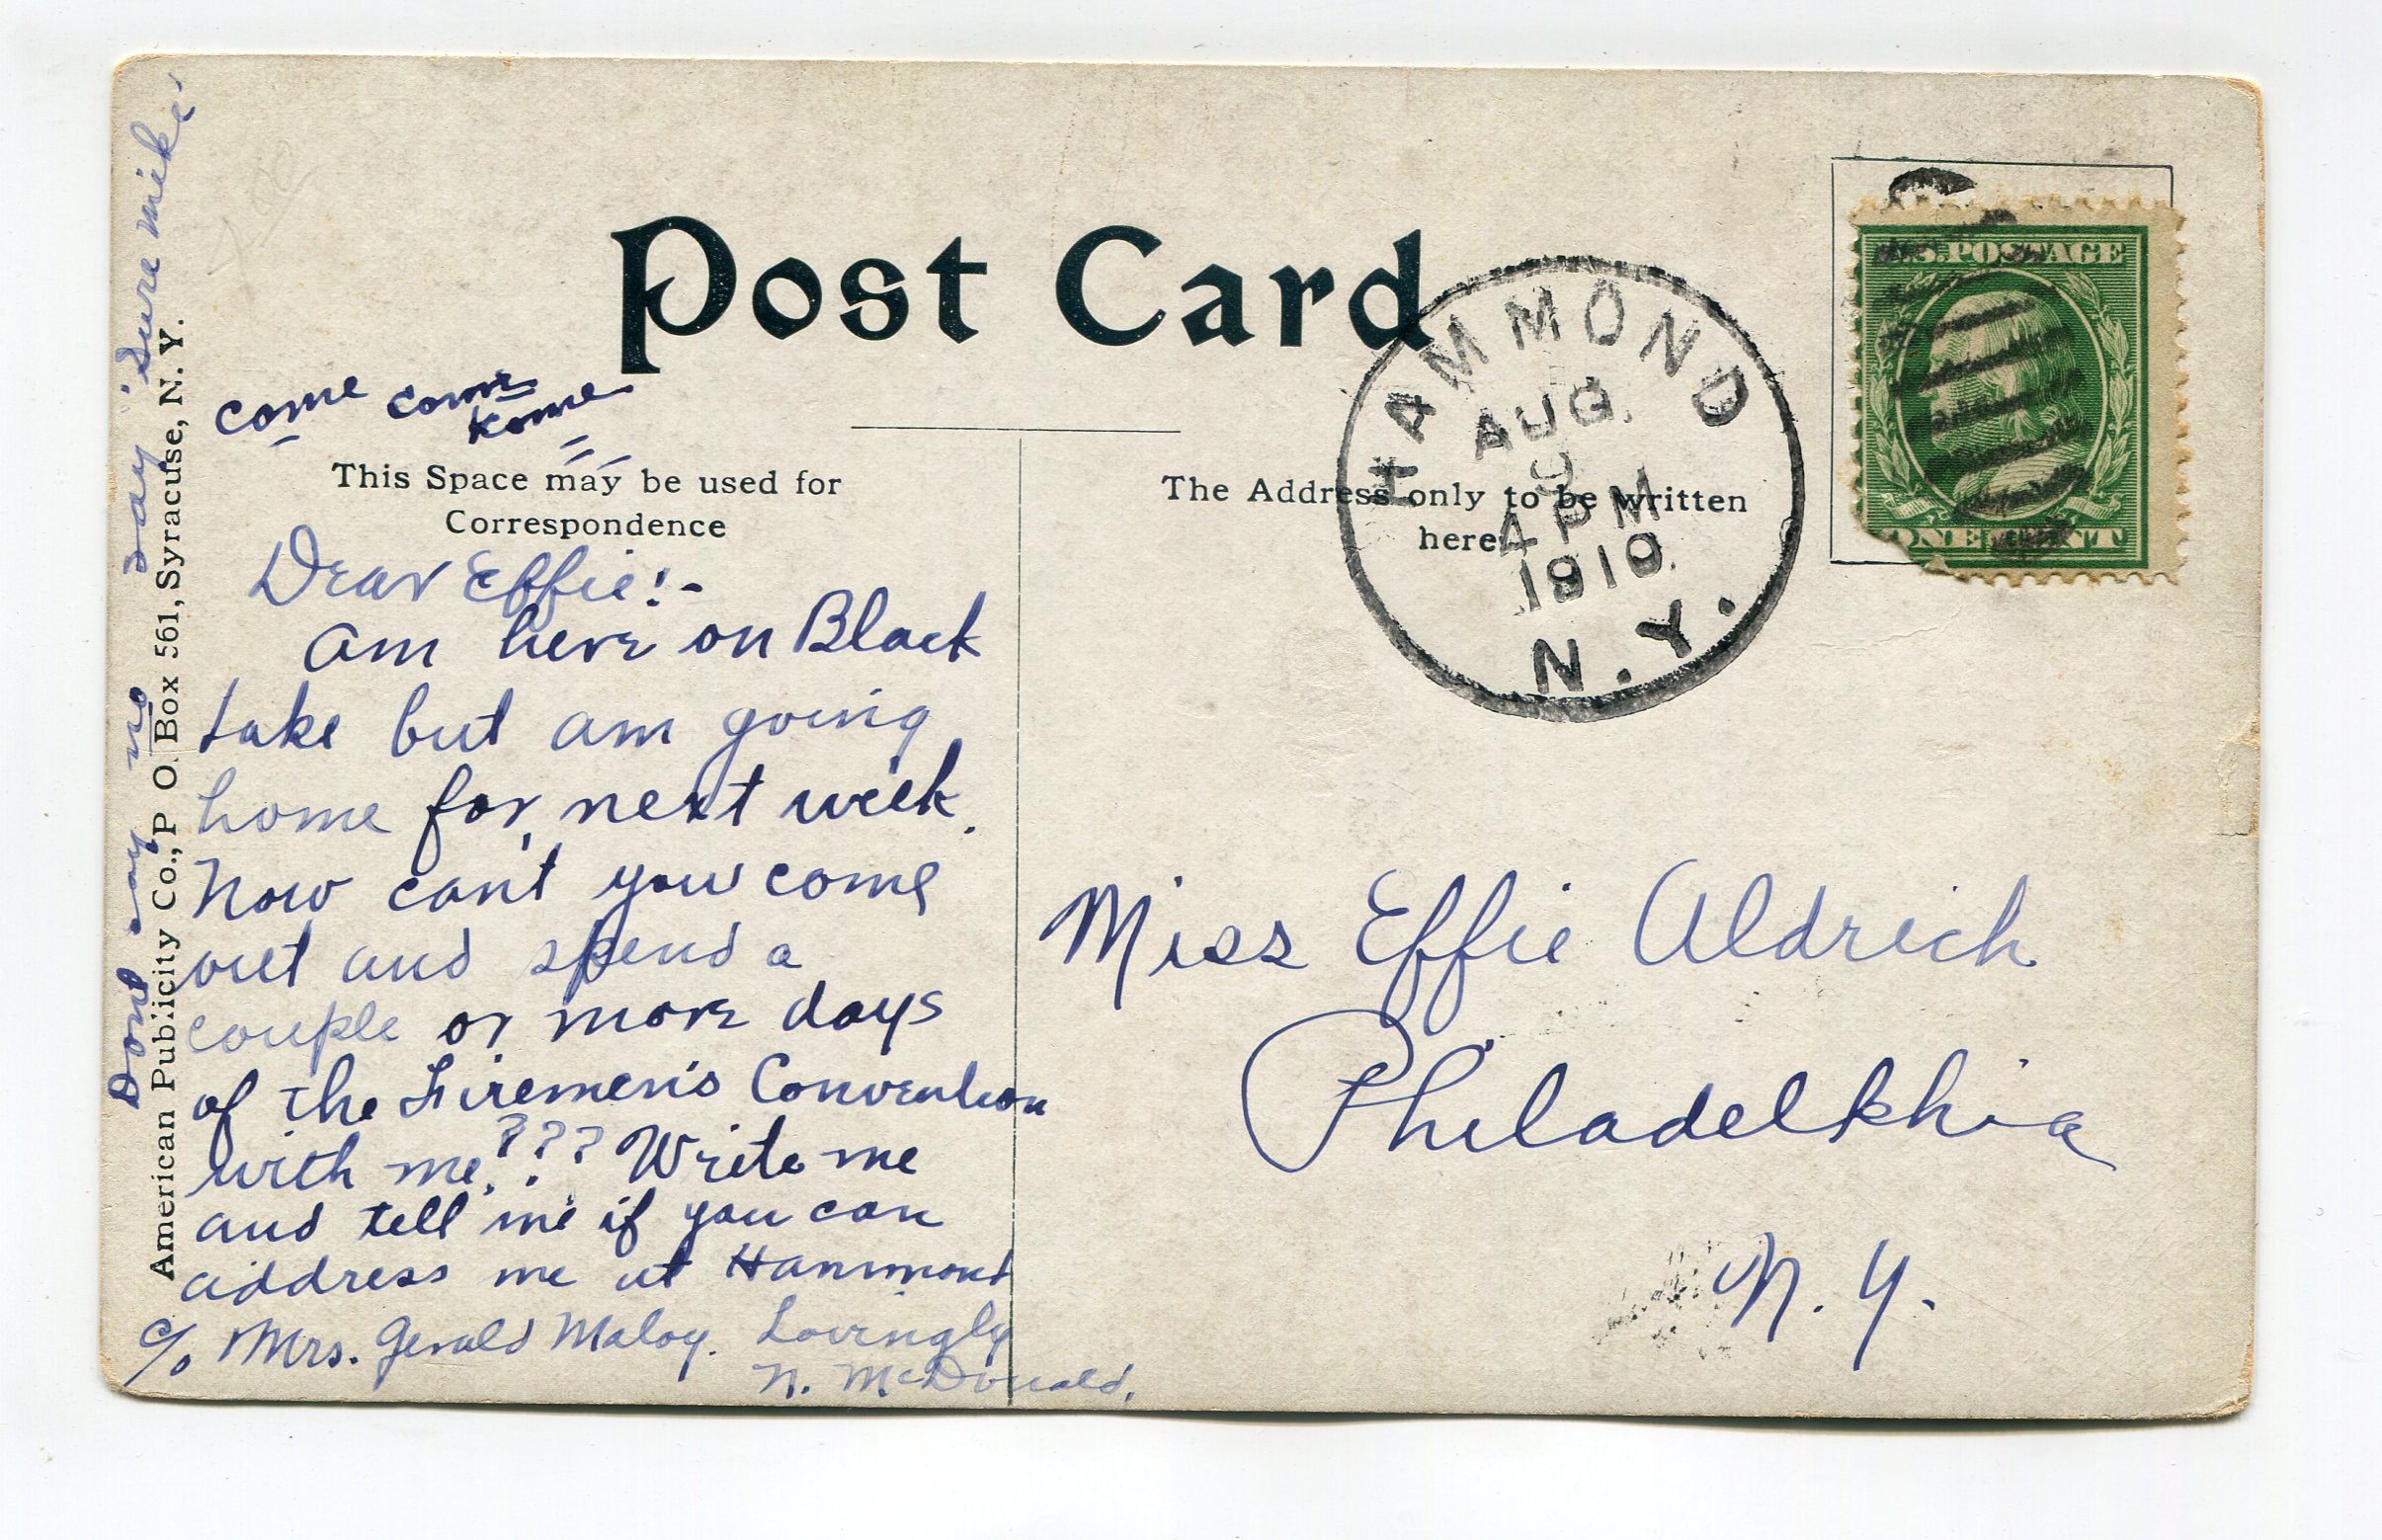 Post Card
come come
Kome
This Space may be used for
Correspondence
Dear Effie!-
Am here on Black
Lake but am going
home for next week.
Now can't you come
out and spend a
couple or more days
of the Firemen's Convention
with me.??? Write me
and tell me if you can
address me at Hammond
c/o Mrs. Gerald Maloy. Lovingly
N. McDonald.
Dont say no say "Sure Mike"
American Publicity Co., P. O. Box 561, Syracuse, N. Y.
The Address only to be written
here
HAMMOND
AUG.
9
4 PM
1910.
N.Y.
U.S. POSTAGE
ONE CENT
Miss Effie Aldrich
Philadelphia
N. Y.